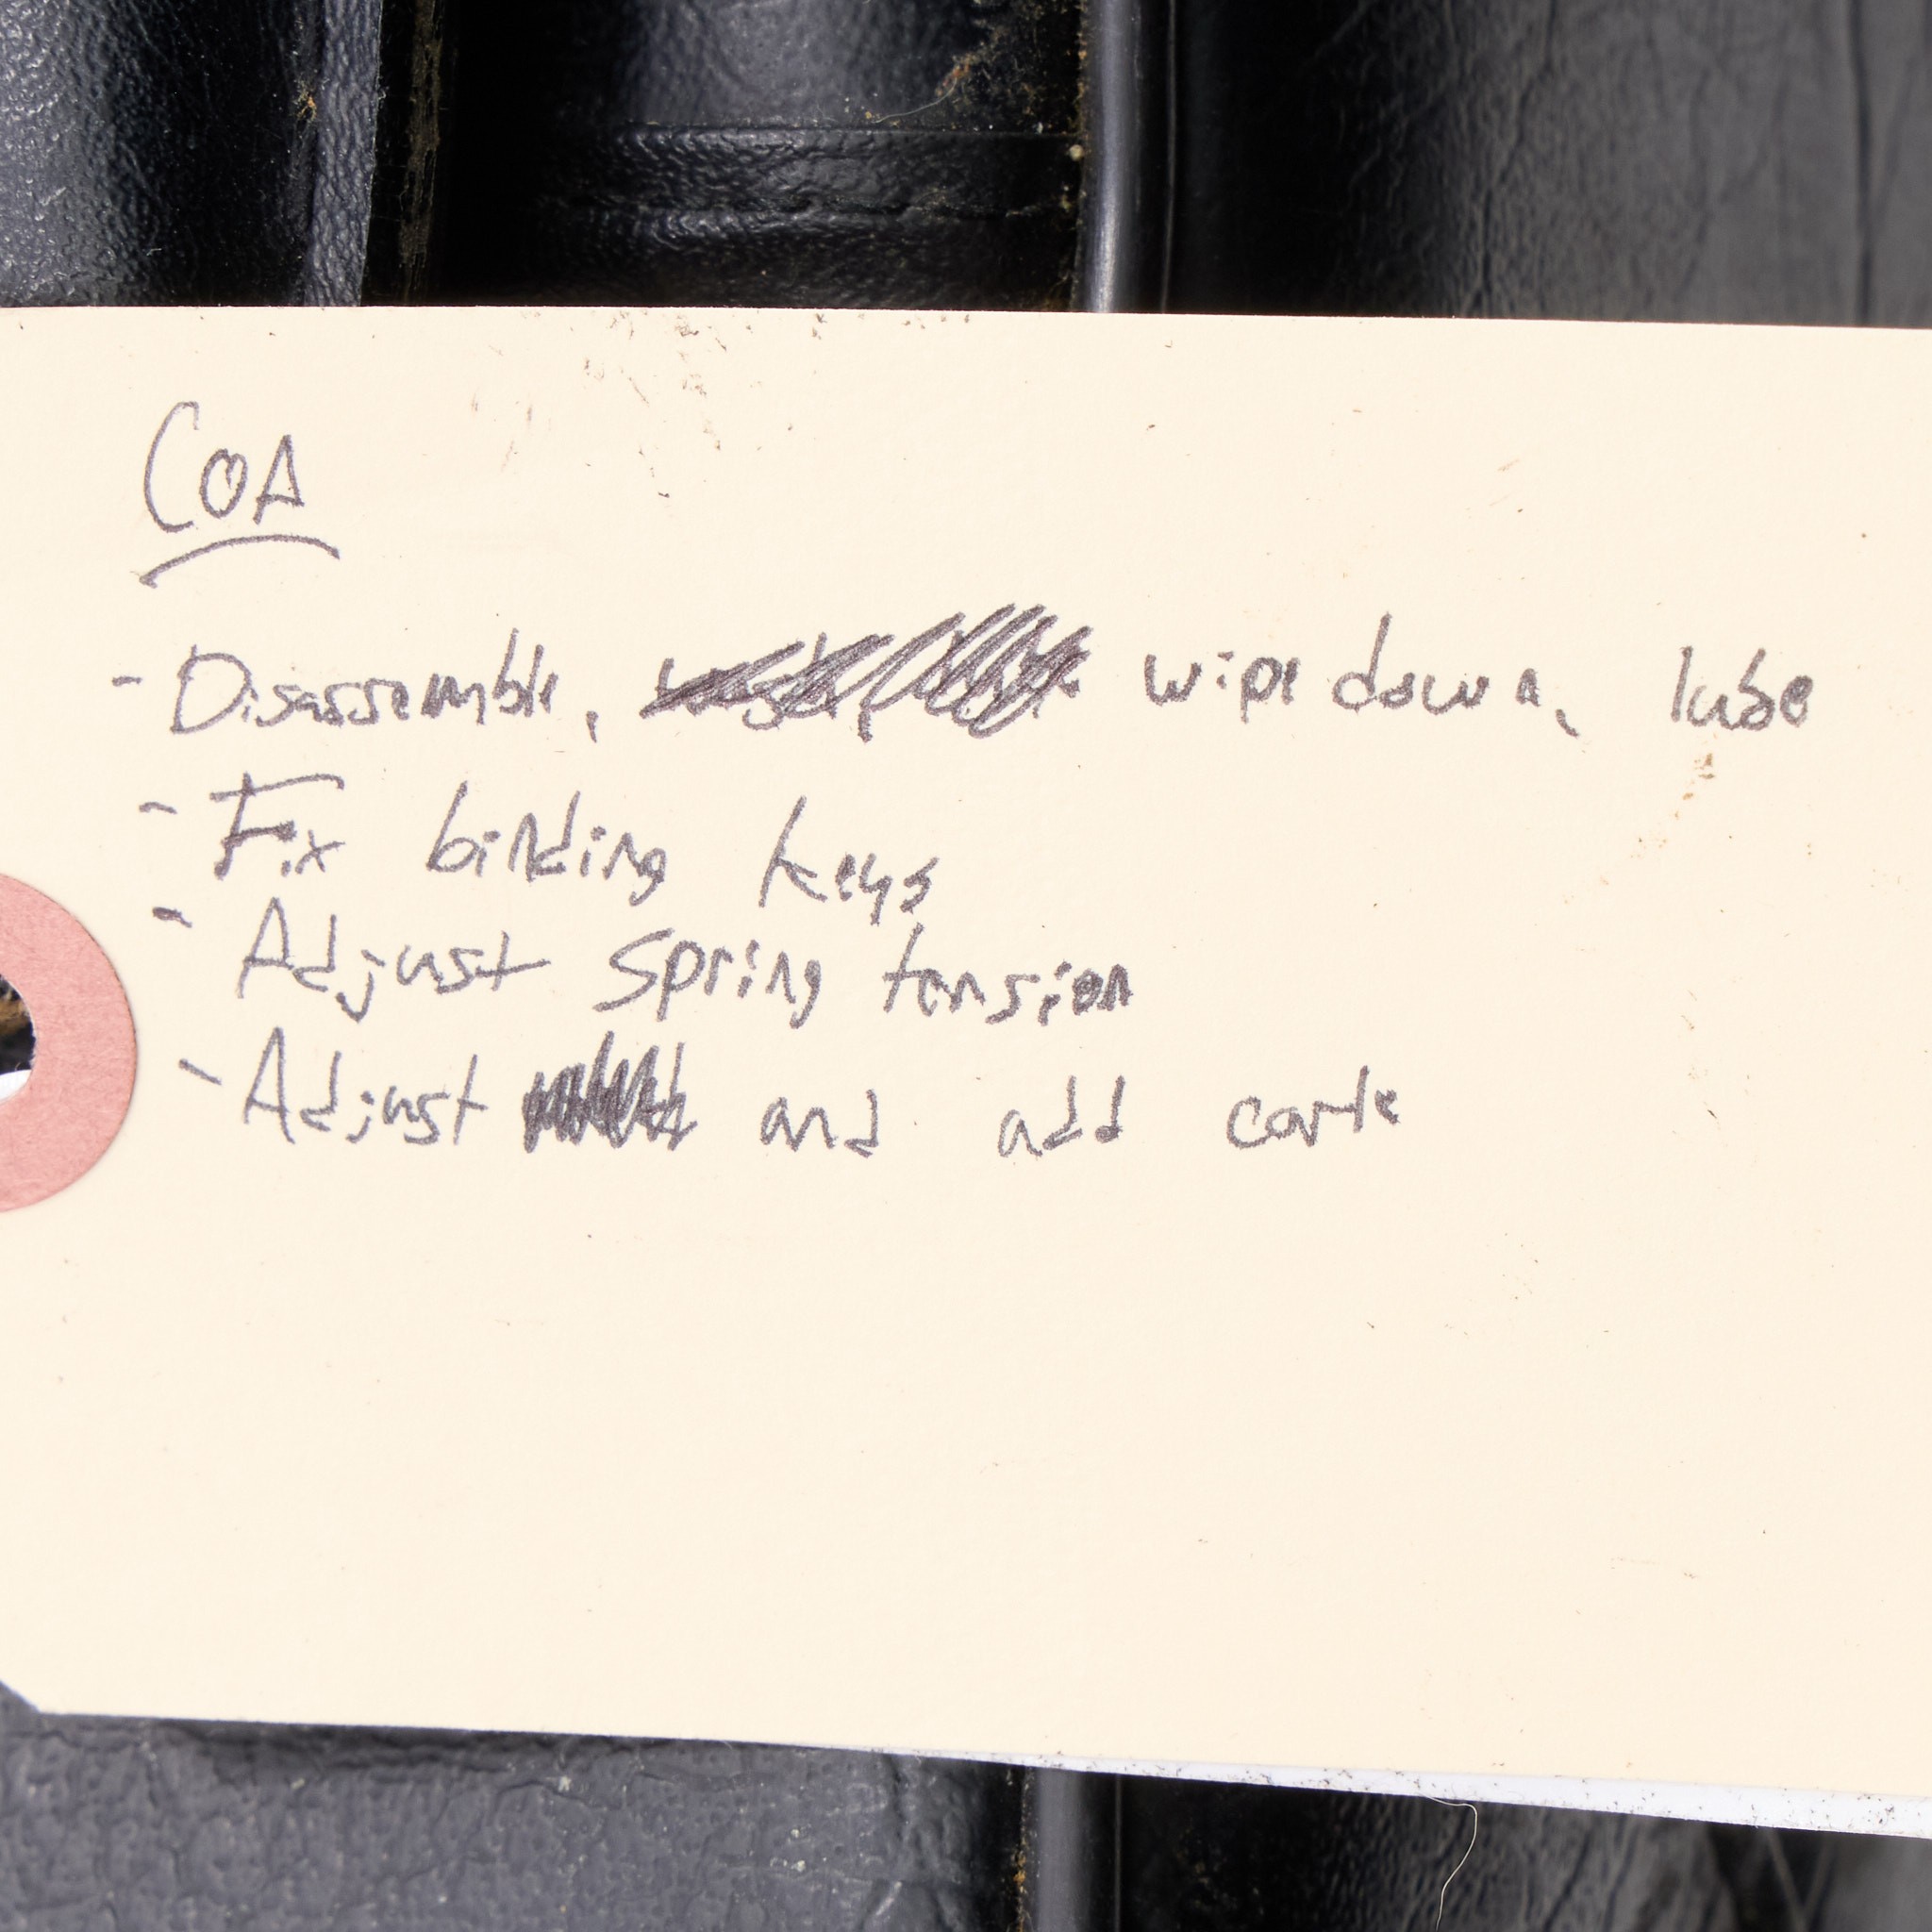 COA
- Disassemble, wipe down, lube
- Fix binding keys
- Adjust spring tension
- Adjust and add cork